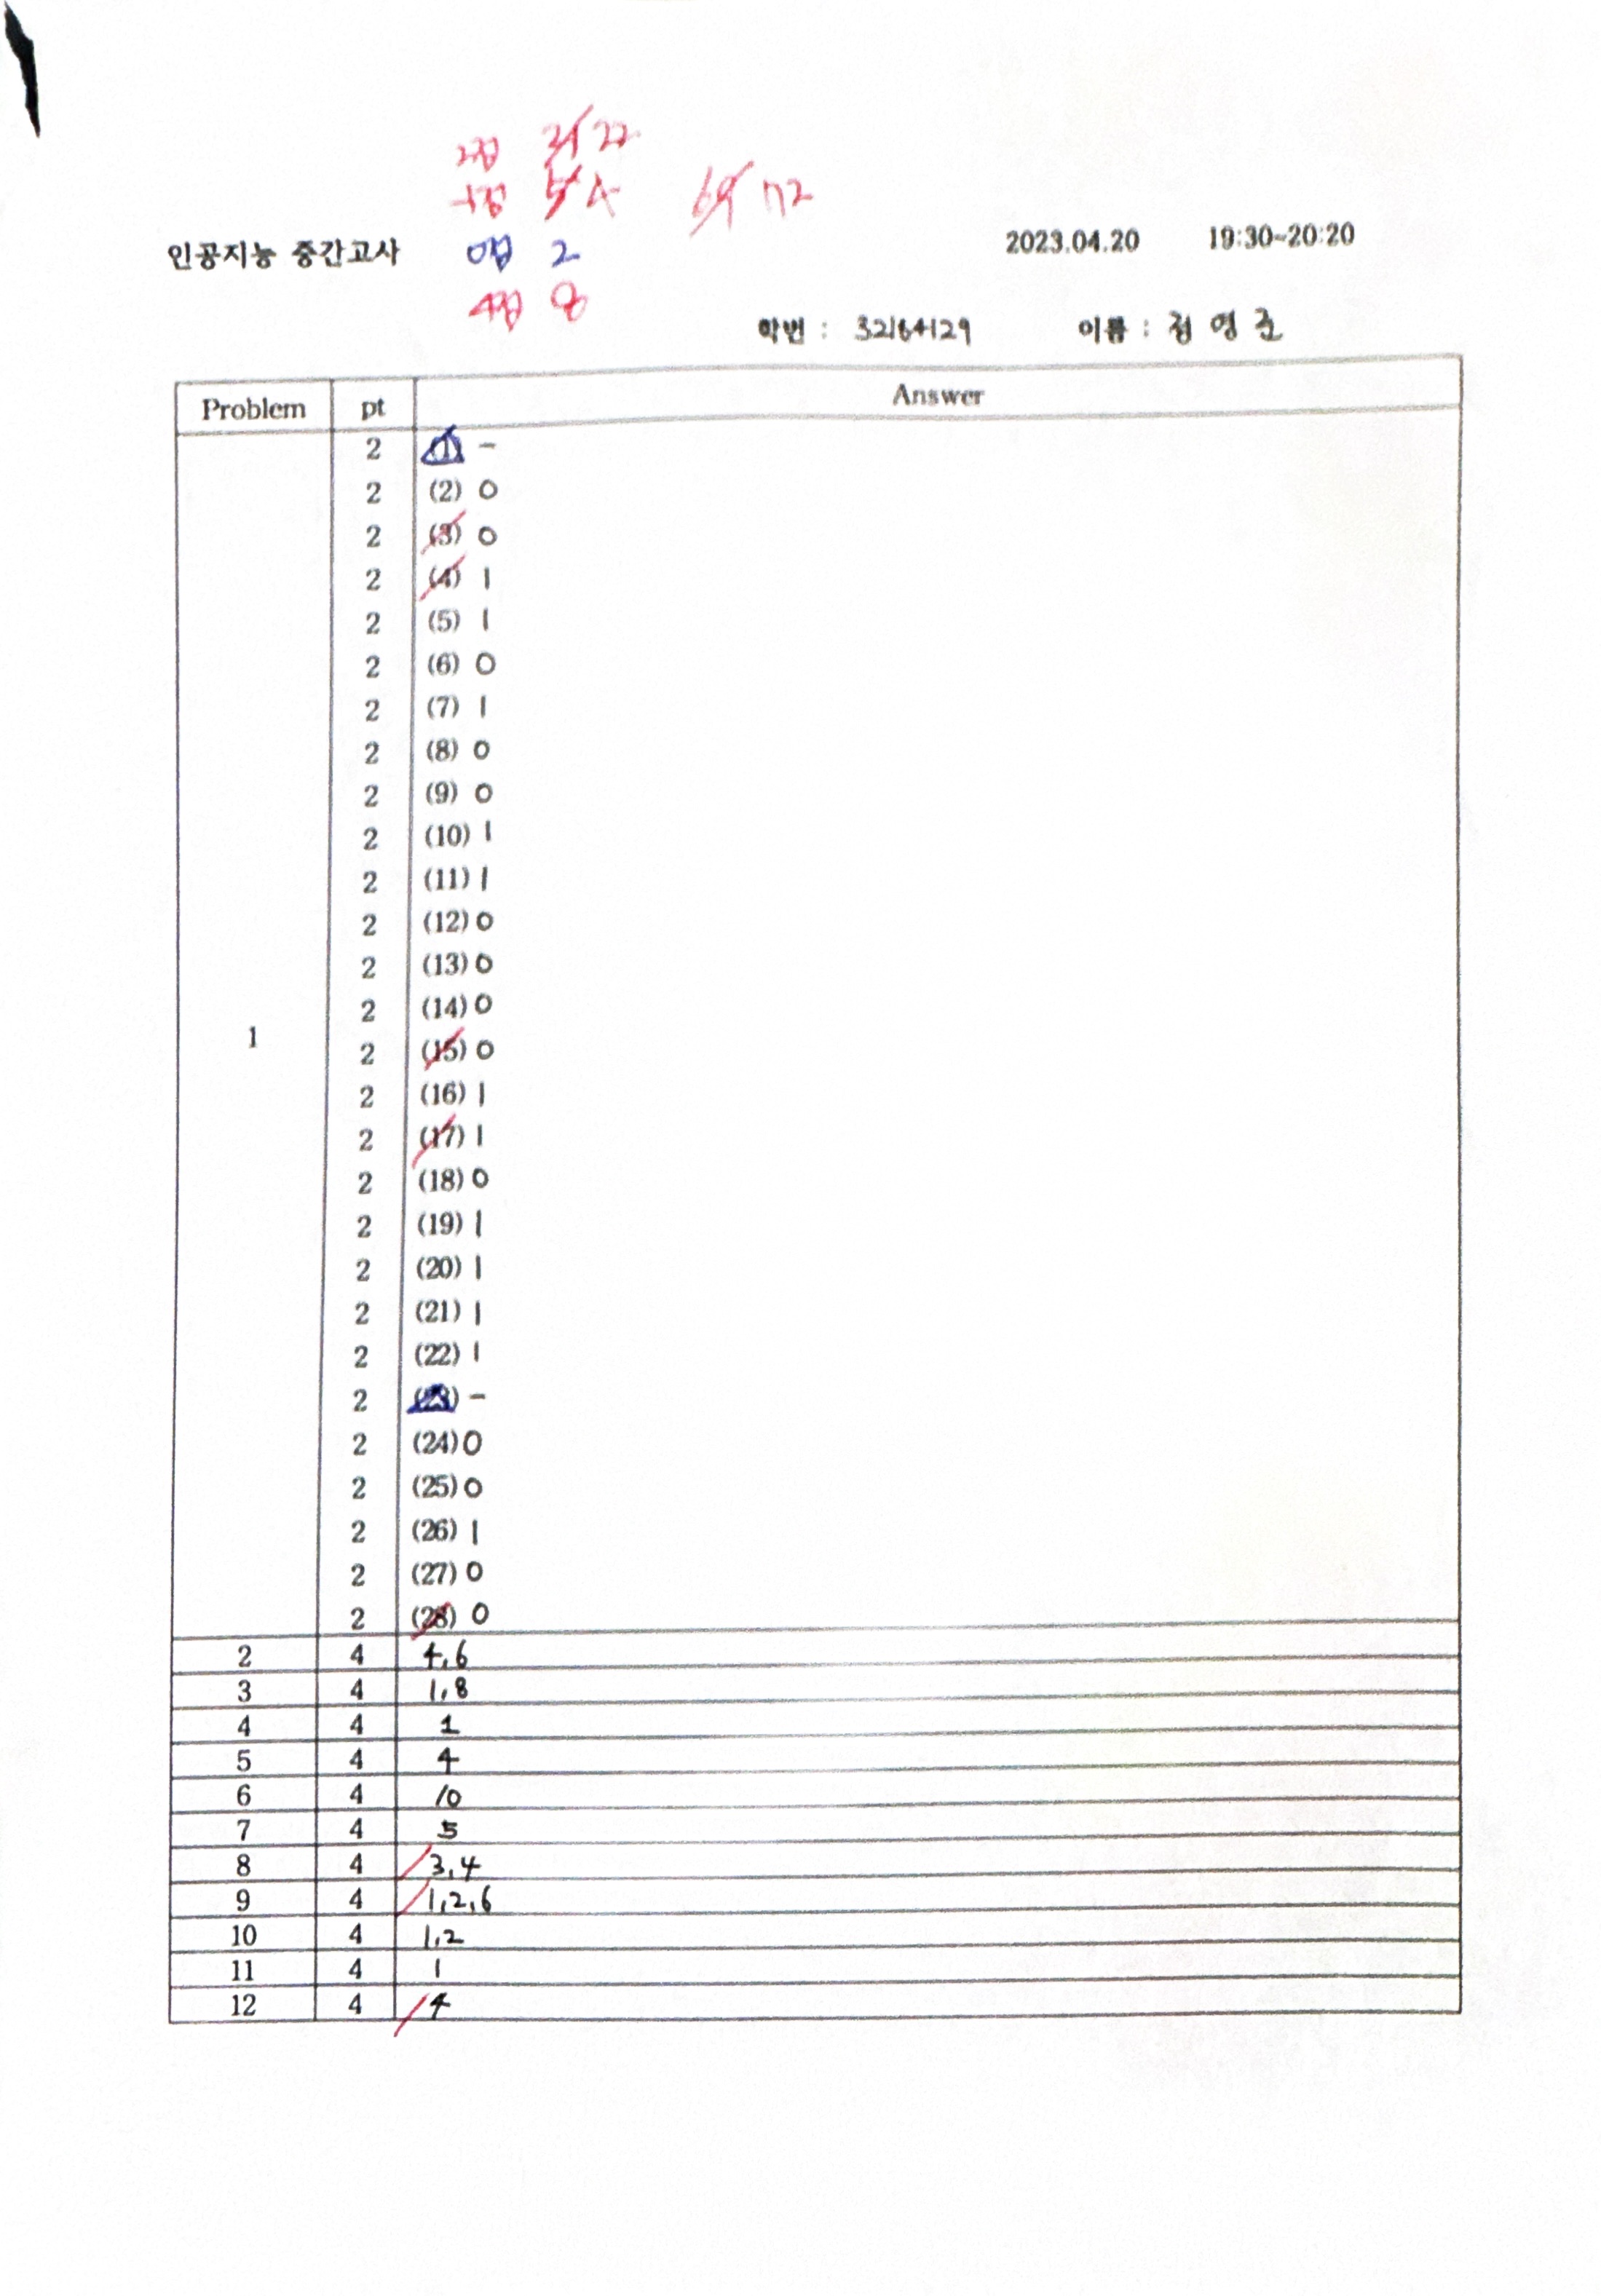 2점 21 22
-1점 5 4 69 72
인공지능 중간고사 0점 2 2023.04.20 19:30~20:20
4점 8
학번 : 32164129 이름 : 정영준
Problem pt Answer
2 (1) -
2 (2) 0
2 (3) 0
2 (4) 1
2 (5) 1
2 (6) 0
2 (7) 1
2 (8) 0
2 (9) 0
2 (10) 1
2 (11) 1
2 (12) 0
2 (13) 0
2 (14) 0
1
2 (15) 0
2 (16) 1
2 (17) 1
2 (18) 0
2 (19) 1
2 (20) 1
2 (21) 1
2 (22) 1
2 (23) -
2 (24) 0
2 (25) 0
2 (26) 1
2 (27) 0
2 (28) 0
2 4 4,6
3 4 1,8
4 4 1
5 4 4
6 4 10
7 4 5
8 4 3,4
9 4 1,2,6
10 4 1,2
11 4 1
12 4 4